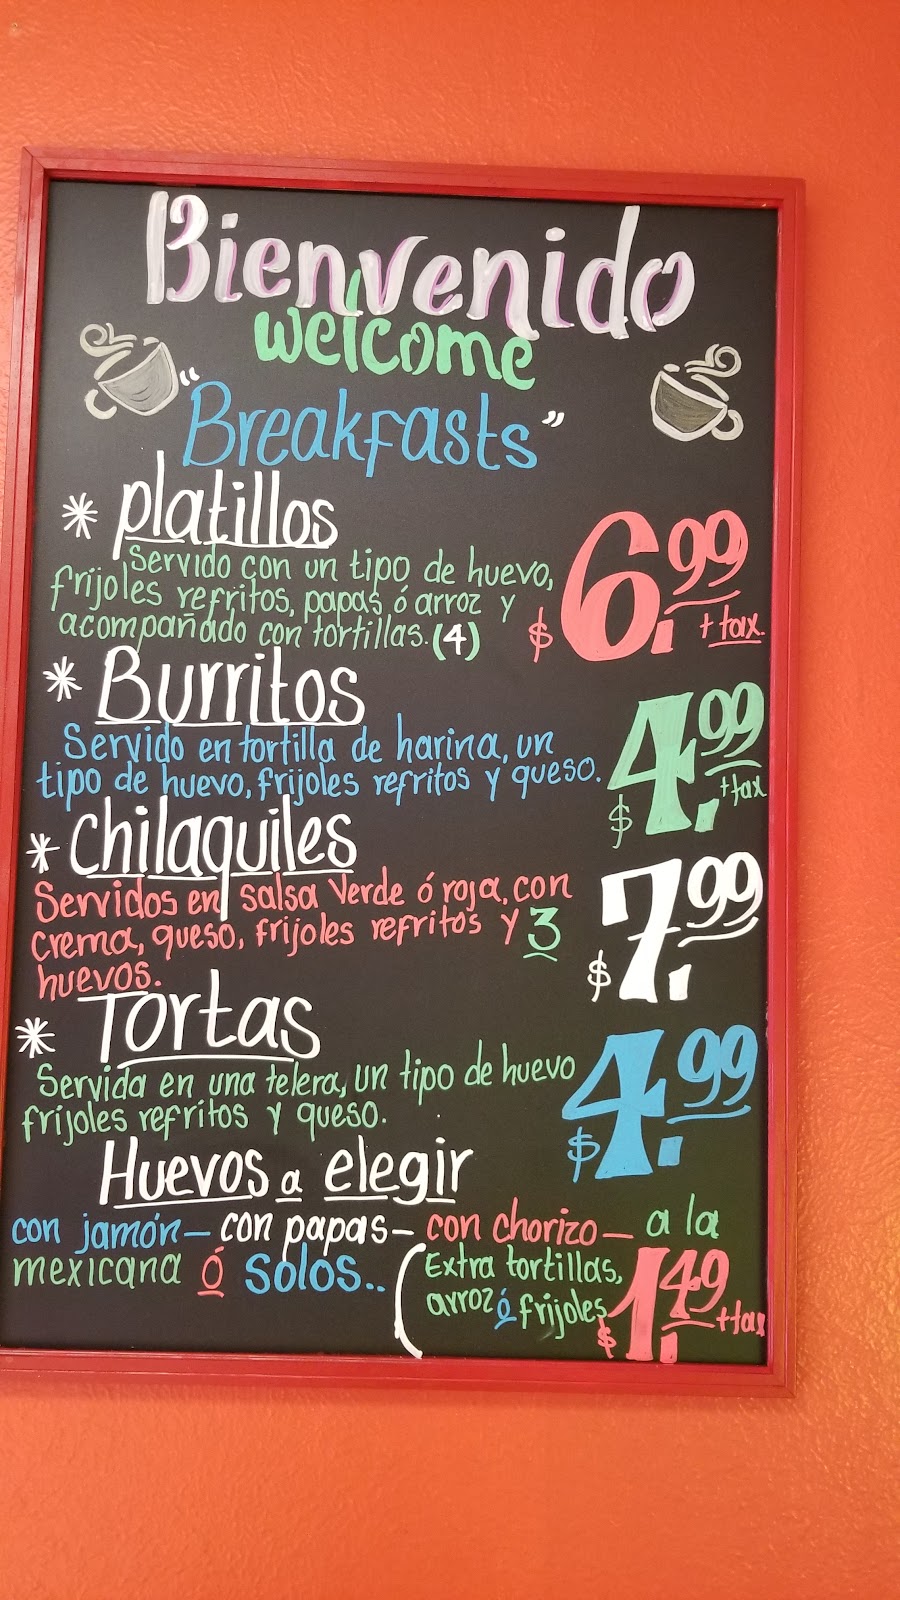 Bienvenido
welcome
"Breakfasts"
* Platillos
Servido con un tipo de huevo,
frijoles refritos, papas ó arroz y
acompañado con tortillas. (4)
$6.99 + tax.
* Burritos
Servido en tortilla de harina, un
tipo de huevo, frijoles refritos y queso.
$4.99 + tax
* Chilaquiles
Servidos en salsa Verde ó roja, con
crema, queso, frijoles refritos y 3
huevos.
$7.99
* Tortas
Servida en una telera, un tipo de huevo
frijoles refritos y queso.
$4.99
Huevos a elegir
con jamón – con papas – con chorizo – a la
mexicana ó solos..
(Extra tortillas,
arroz ó frijoles
$1.49 + tax